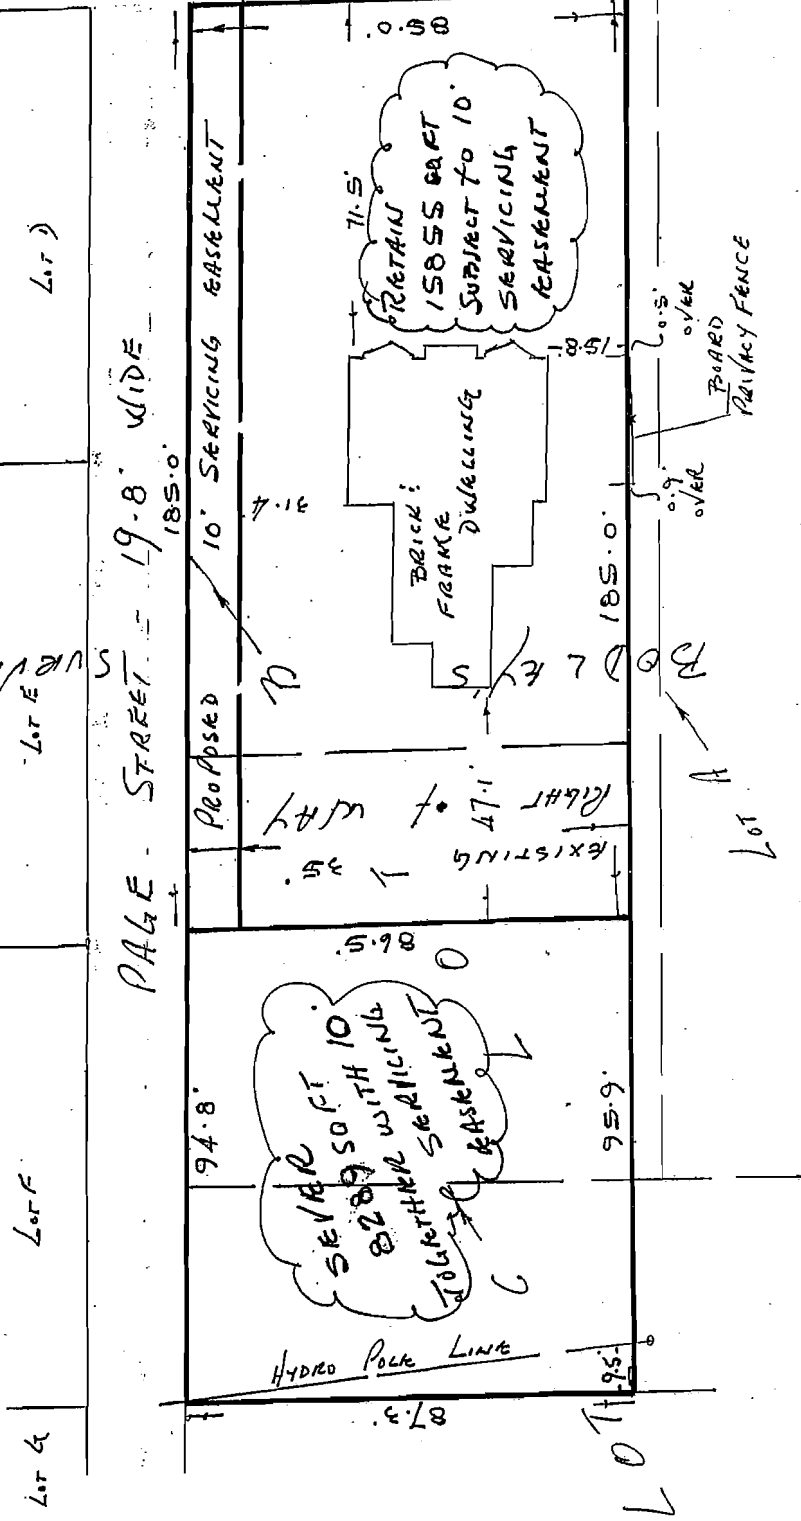 LOT G
LOT F
LOT E
LOT D
SURV
PAGE - STREET - 19.8' WIDE
185.0'
94.8'
PROPOSED 10' SERVICING EASEMENT
85.0'
71.5'
RETAIN
15855 SQ FT
SUBJECT TO 10'
SERVICING
EASEMENT
31.4
BRICK &
FRAME
DWELLING
15.8'
0.5'
OVER
BOARD
PRIVACY FENCE
0.9'
OVER
185.0'
BODLEY'S
EXISTING
RIGHT of WAY
35'
47.1'
LOT A
86.5'
SEVER
8289 SQ FT
TOGETHER WITH 10'
SERVICING
EASEMENT
95.9'
HYDRO POLE LINE
9.5'
87.3'
LOT
C